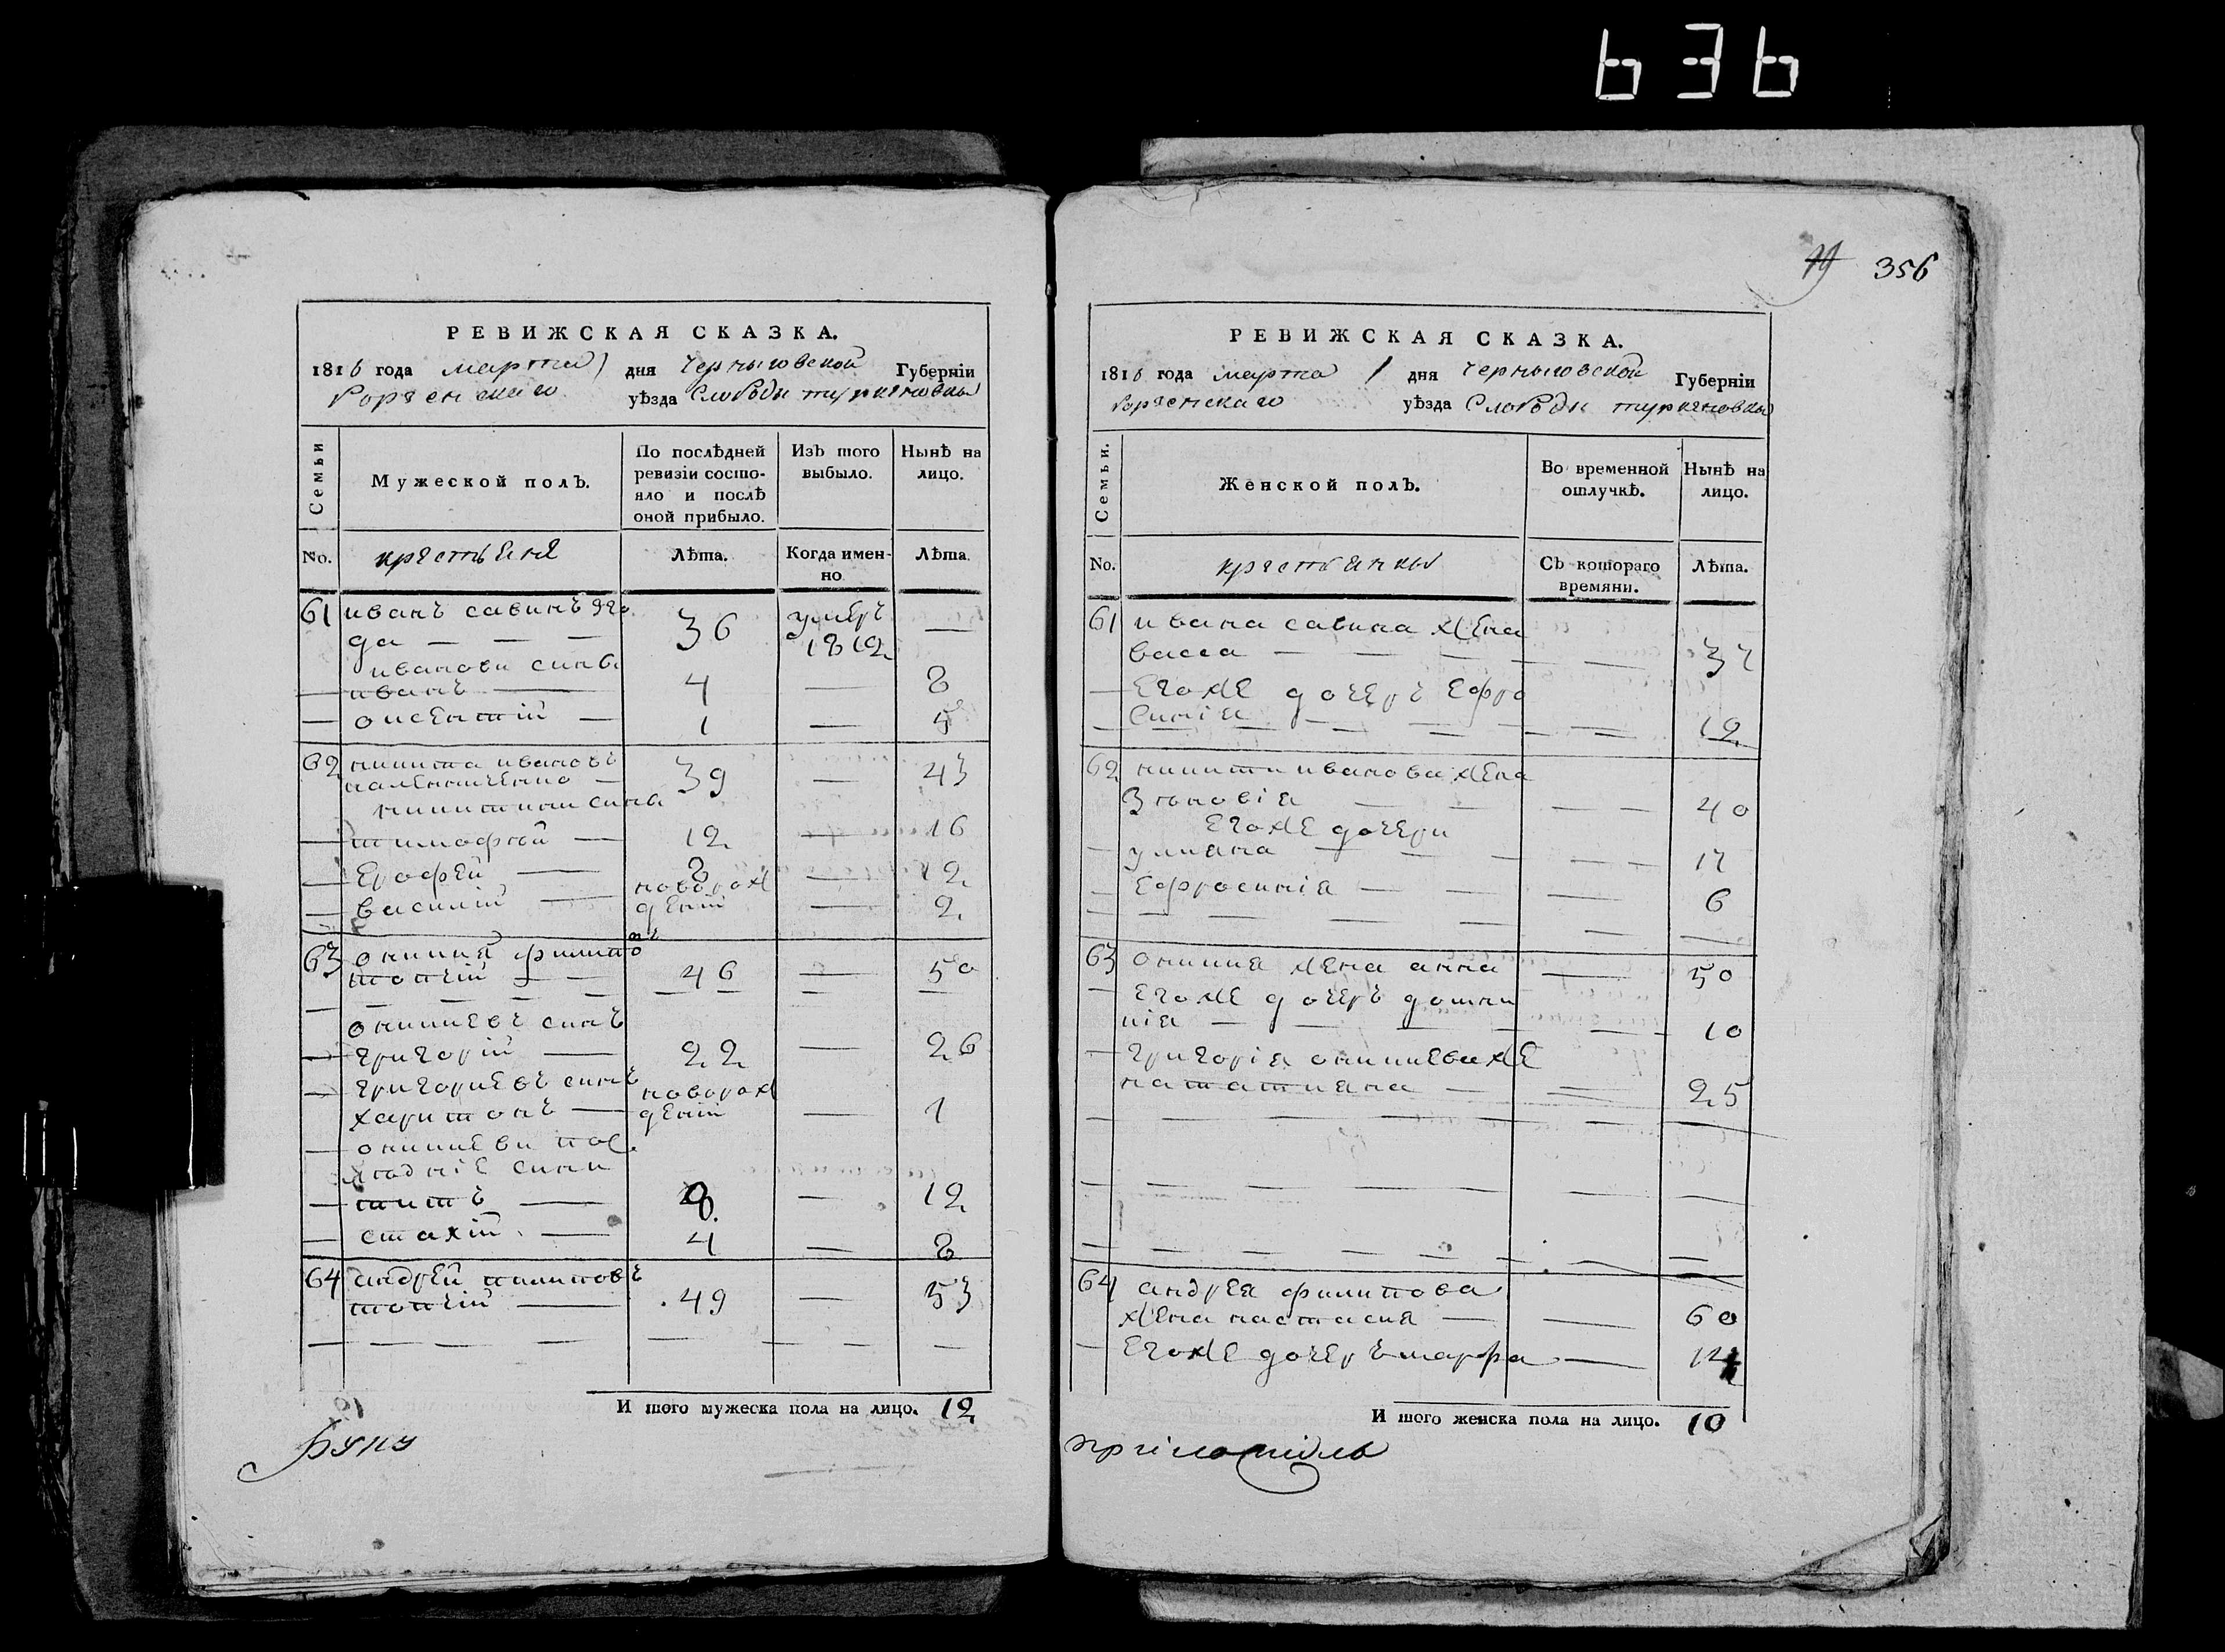 636
356
РЕВИЖСКАЯ СКАЗКА.
1816 года марта 1 дня Черниговской Губерніи
уѣзда Слободи туркеновки
Семьи
Мужеской полъ.
По послѣдней ревизіи состояло и послѣ оной прибыло.
Изъ того выбыло.
Нынѣ на лицо.
No.
крестьяне
Лѣта.
Когда именно
Лѣта
61 иванъ савинъ
да — — — 36 умеръ 1812 —
иванови сини
— иванъ — 4 — 8
— оксентій — 1 — 5
62 никита ивановъ
39 — 43
никитини сини
— тимофей — 12 — 16
— Ерофей — 8 — 12
— василій — новорожденій — 2
63 онипий филипо
топчій — — 46 — 50
онишиевъ синъ
— григорій — 22 — 26
— григориевъ синъ
харитонъ — новорожденій — 1
— онишиеви пос
лѣдніе сини
— титъ — 8 — 12
— стахій — 4 — 8
64 андрей пилиповъ
топчій — 49 — 53
И того мужеска пола на лицо. 12
РЕВИЖСКАЯ СКАЗКА.
1816 года марта 1 дня Черниговской Губерніи
уѣзда Слободи туркеновки
Семьи.
Женской полъ.
Во временной отлучкѣ.
Нынѣ на лицо.
No.
крестянки
Съ котораго времяни.
Лѣта.
61 ивана савина жена
васса — — — 37
— Егоже дочеръ Ефро
синія — — — 12
62 никити иванова жена
Зѣновія — — — 40
Егоже дочери
— улияна — — — 17
— Ефросинія — — — 6
63 онишия жена анна — 50
— Егоже дочеръ домни
кія — — — 10
— григорія онишиева же
на татияна — — 25
64 андрея филипова
жена настасия — — 60
— Егоже дочеръ марфа — 14
И того женска пола на лицо. 10